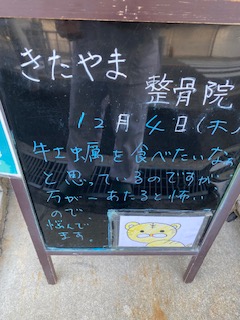 きたやま
整骨院
12月4日(木)
牡蠣を食べたいなぁ
と思っているのですが
万が一あたると怖い
ので
悩んで
ます。